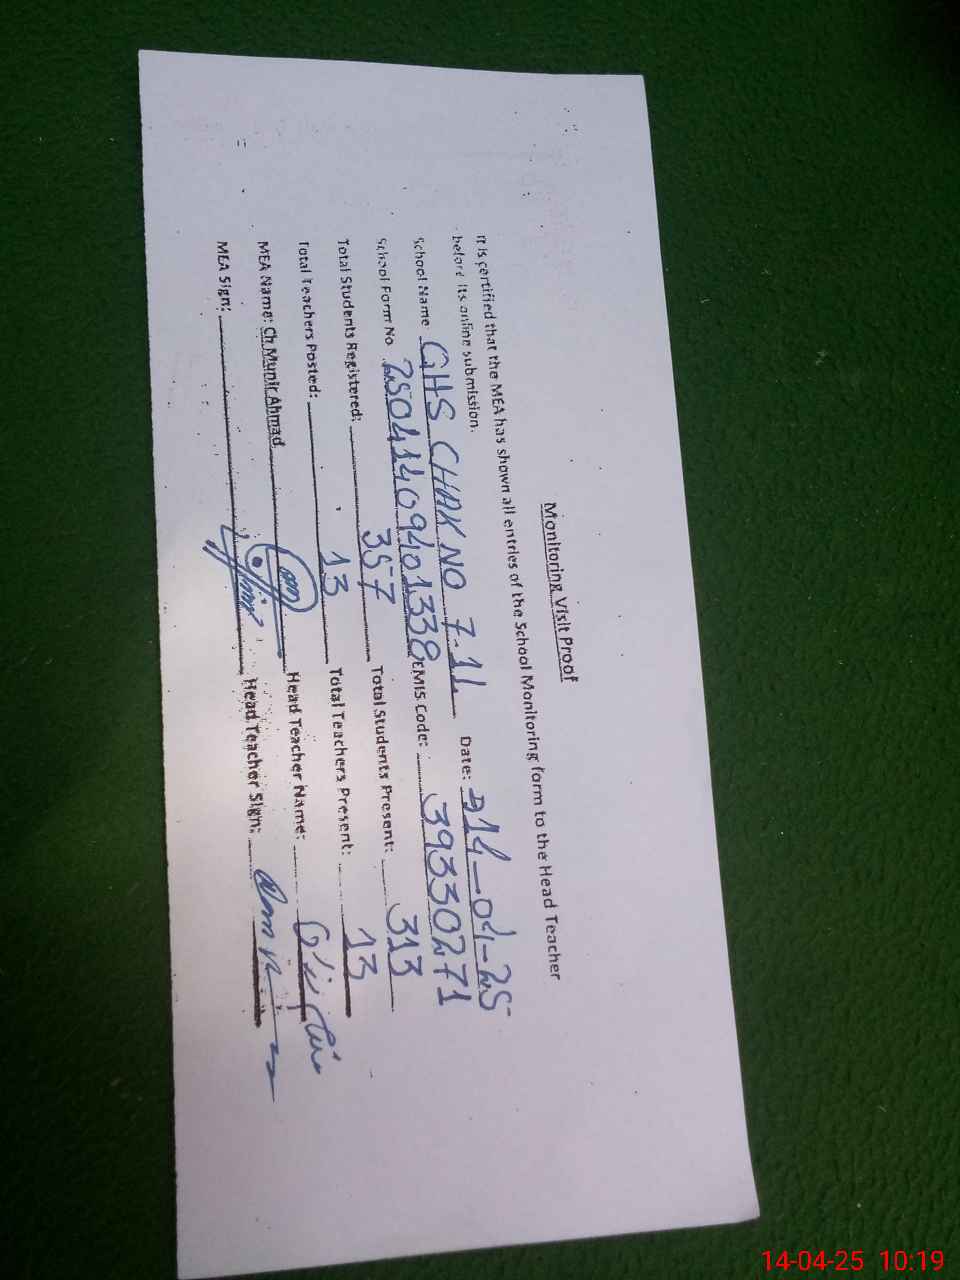 Monitoring Visit Proof
It is certified that the MEA has shown all entries of the School Monitoring form to the Head Teacher
before its online submission.
School Name GHS CHAK NO 7.1L Date: 14-04-25
School Form No 25041409401338 EMIS Code: 39330271
Total Students Registered: 357 Total Students Present: 313
Total Teachers Posted: 13 Total Teachers Present: 13
MEA Name: Ch Munir Ahmad Head Teacher Name:
MEA Sign: Head Teacher Sign:
14-04-25 10:19